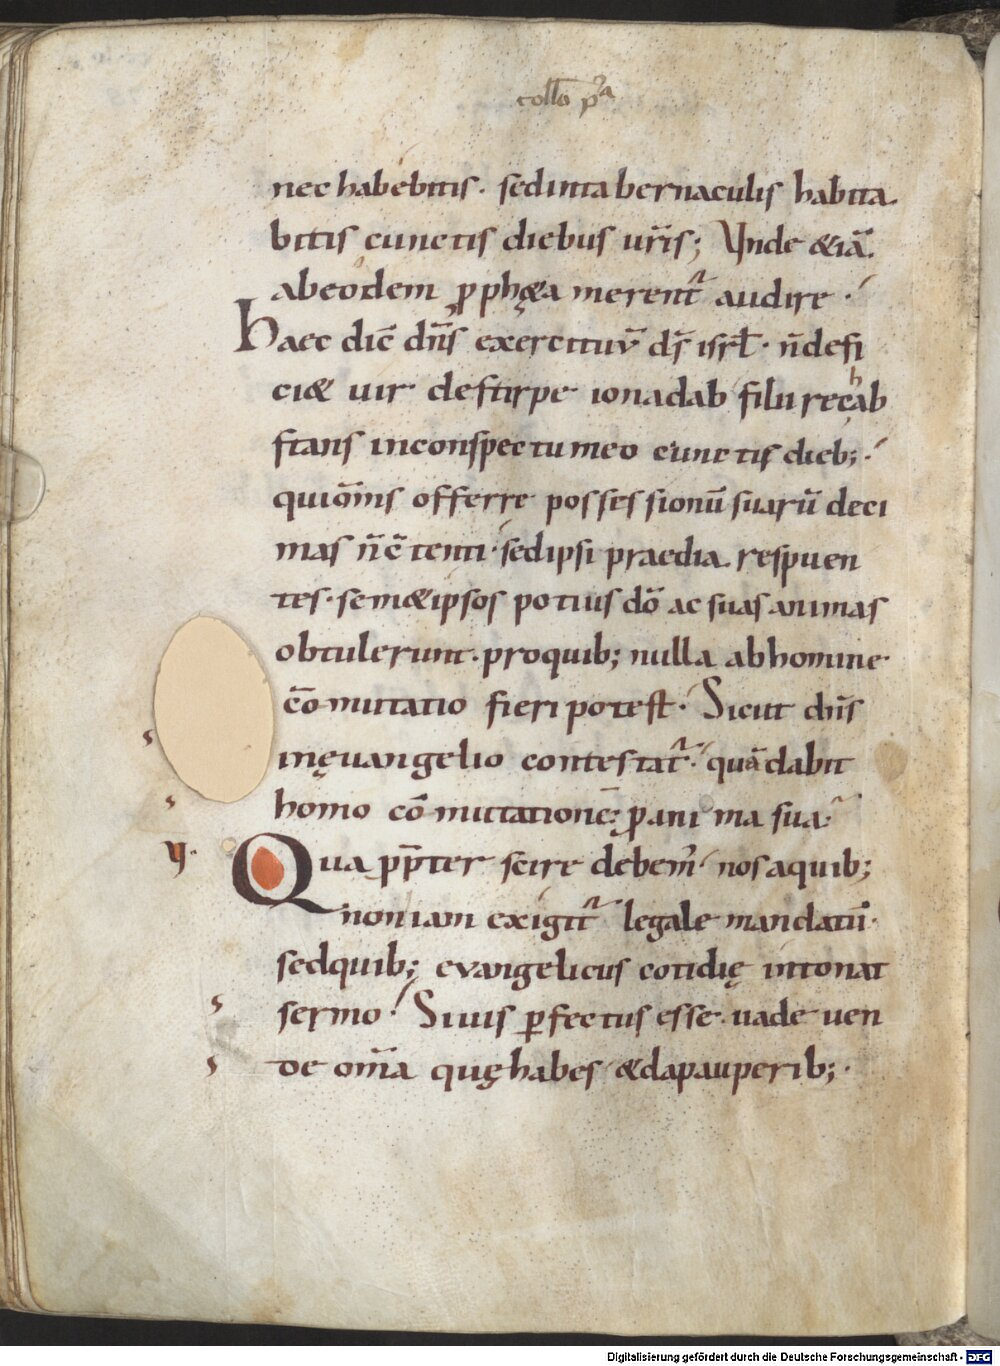 collō pᵃ
nec habebitis. sed in tabernaculis habita
bitis cunctis diebus ur̄is; Vnde &iā
ab eodem p̱ph&a merent᷑ audire.
Haec dic̄ dn̄s exercituū ds̄ isrł. n̄ defi
ci& uir de stirpe ionadab filii rechab
stans in conspectu meo cunctis dieb;.
qui om̄s offerre possessionū suarū deci
mas n̄ c̄tenti. sed ipsi praedia respuen
tes. sem&ipsos potius dō ac suas animas
obtulerunt. pro quib; nulla ab homine
cōmutatio fieri potest. Sicut dn̄s
in ęuangelio contestat᷑. quā dabit
homo cōmutationē; p̱ anima sua.
V. Quapp̄ter scire debem᷒ nos a quib;
non iam exigit᷑ legale mandatū.
sed quib; evangelicus cotidię intonat
sermo. Si uis ꝑfectus esse. uade uen
de om̄a quę habes & da pauperib;.
Digitalisierung gefördert durch die Deutsche Forschungsgemeinschaft - DFG